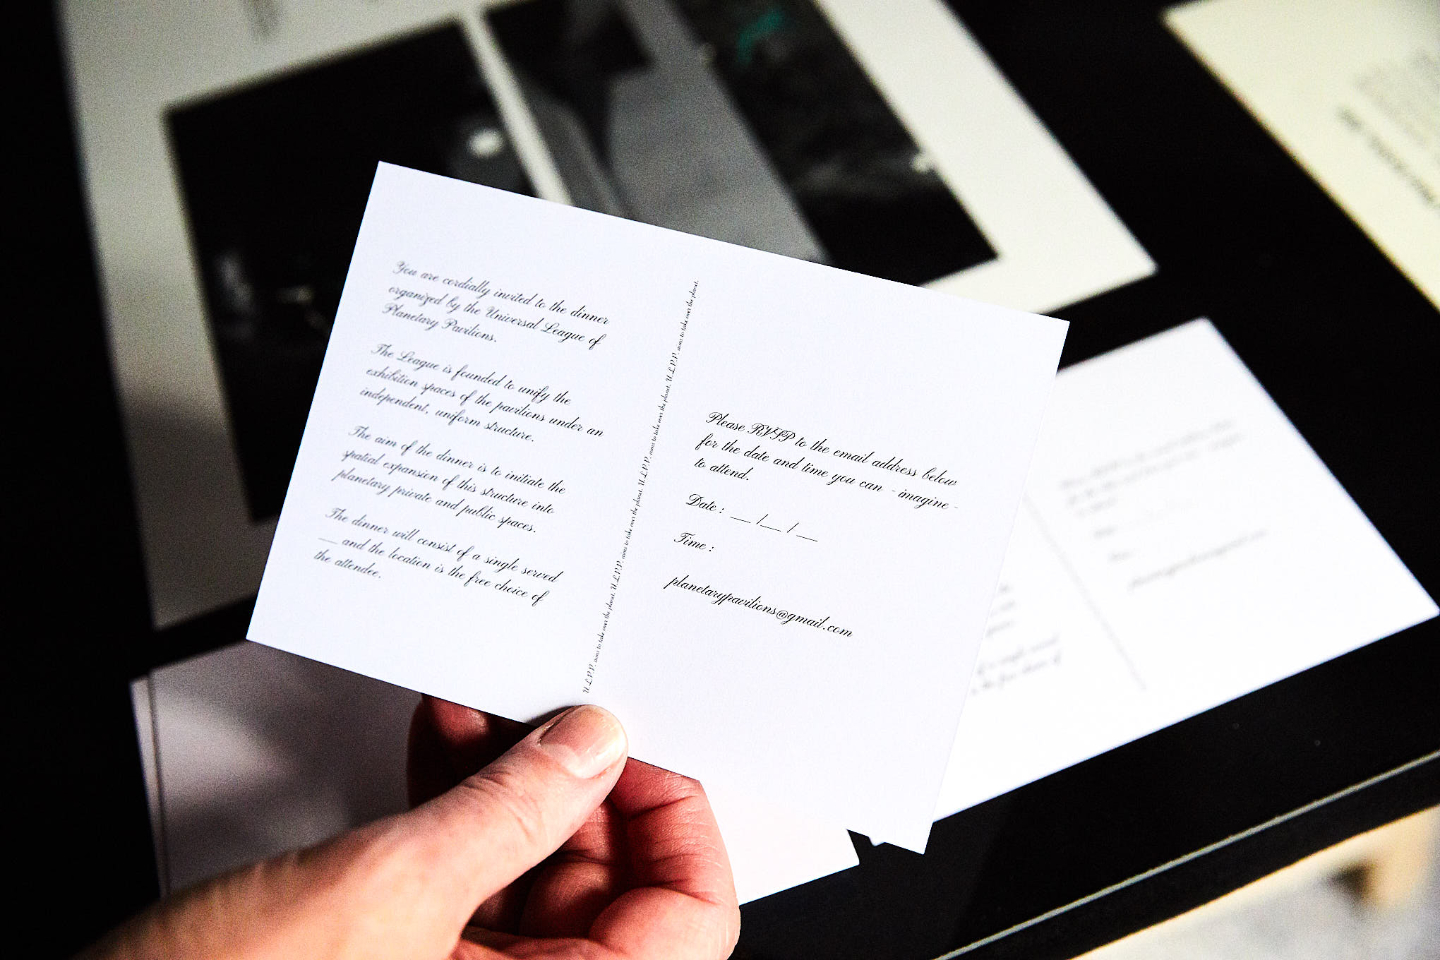 You are cordially invited to the dinner
organized by the Universal League of
Planetary Pavilions.
The League is founded to unify the
exhibition spaces of the pavilions under an
independent, uniform structure.
The aim of the dinner is to initiate the
spatial expansion of this structure into
planetary private and public spaces.
The dinner will consist of a single served
__ and the location is the free choice of
the attendee.
U.L.P.P. aims to take over the planet. U.L.P.P. aims to take over the planet. U.L.P.P. aims to take over the planet. U.L.P.P. aims to take over the planet. U.L.P.P. aims to take over the planet.
Please RVSP to the email address below
for the date and time you can - imagine -
to attend.
Date : __ /__ / __
Time :
planetarypavilions@gmail.com